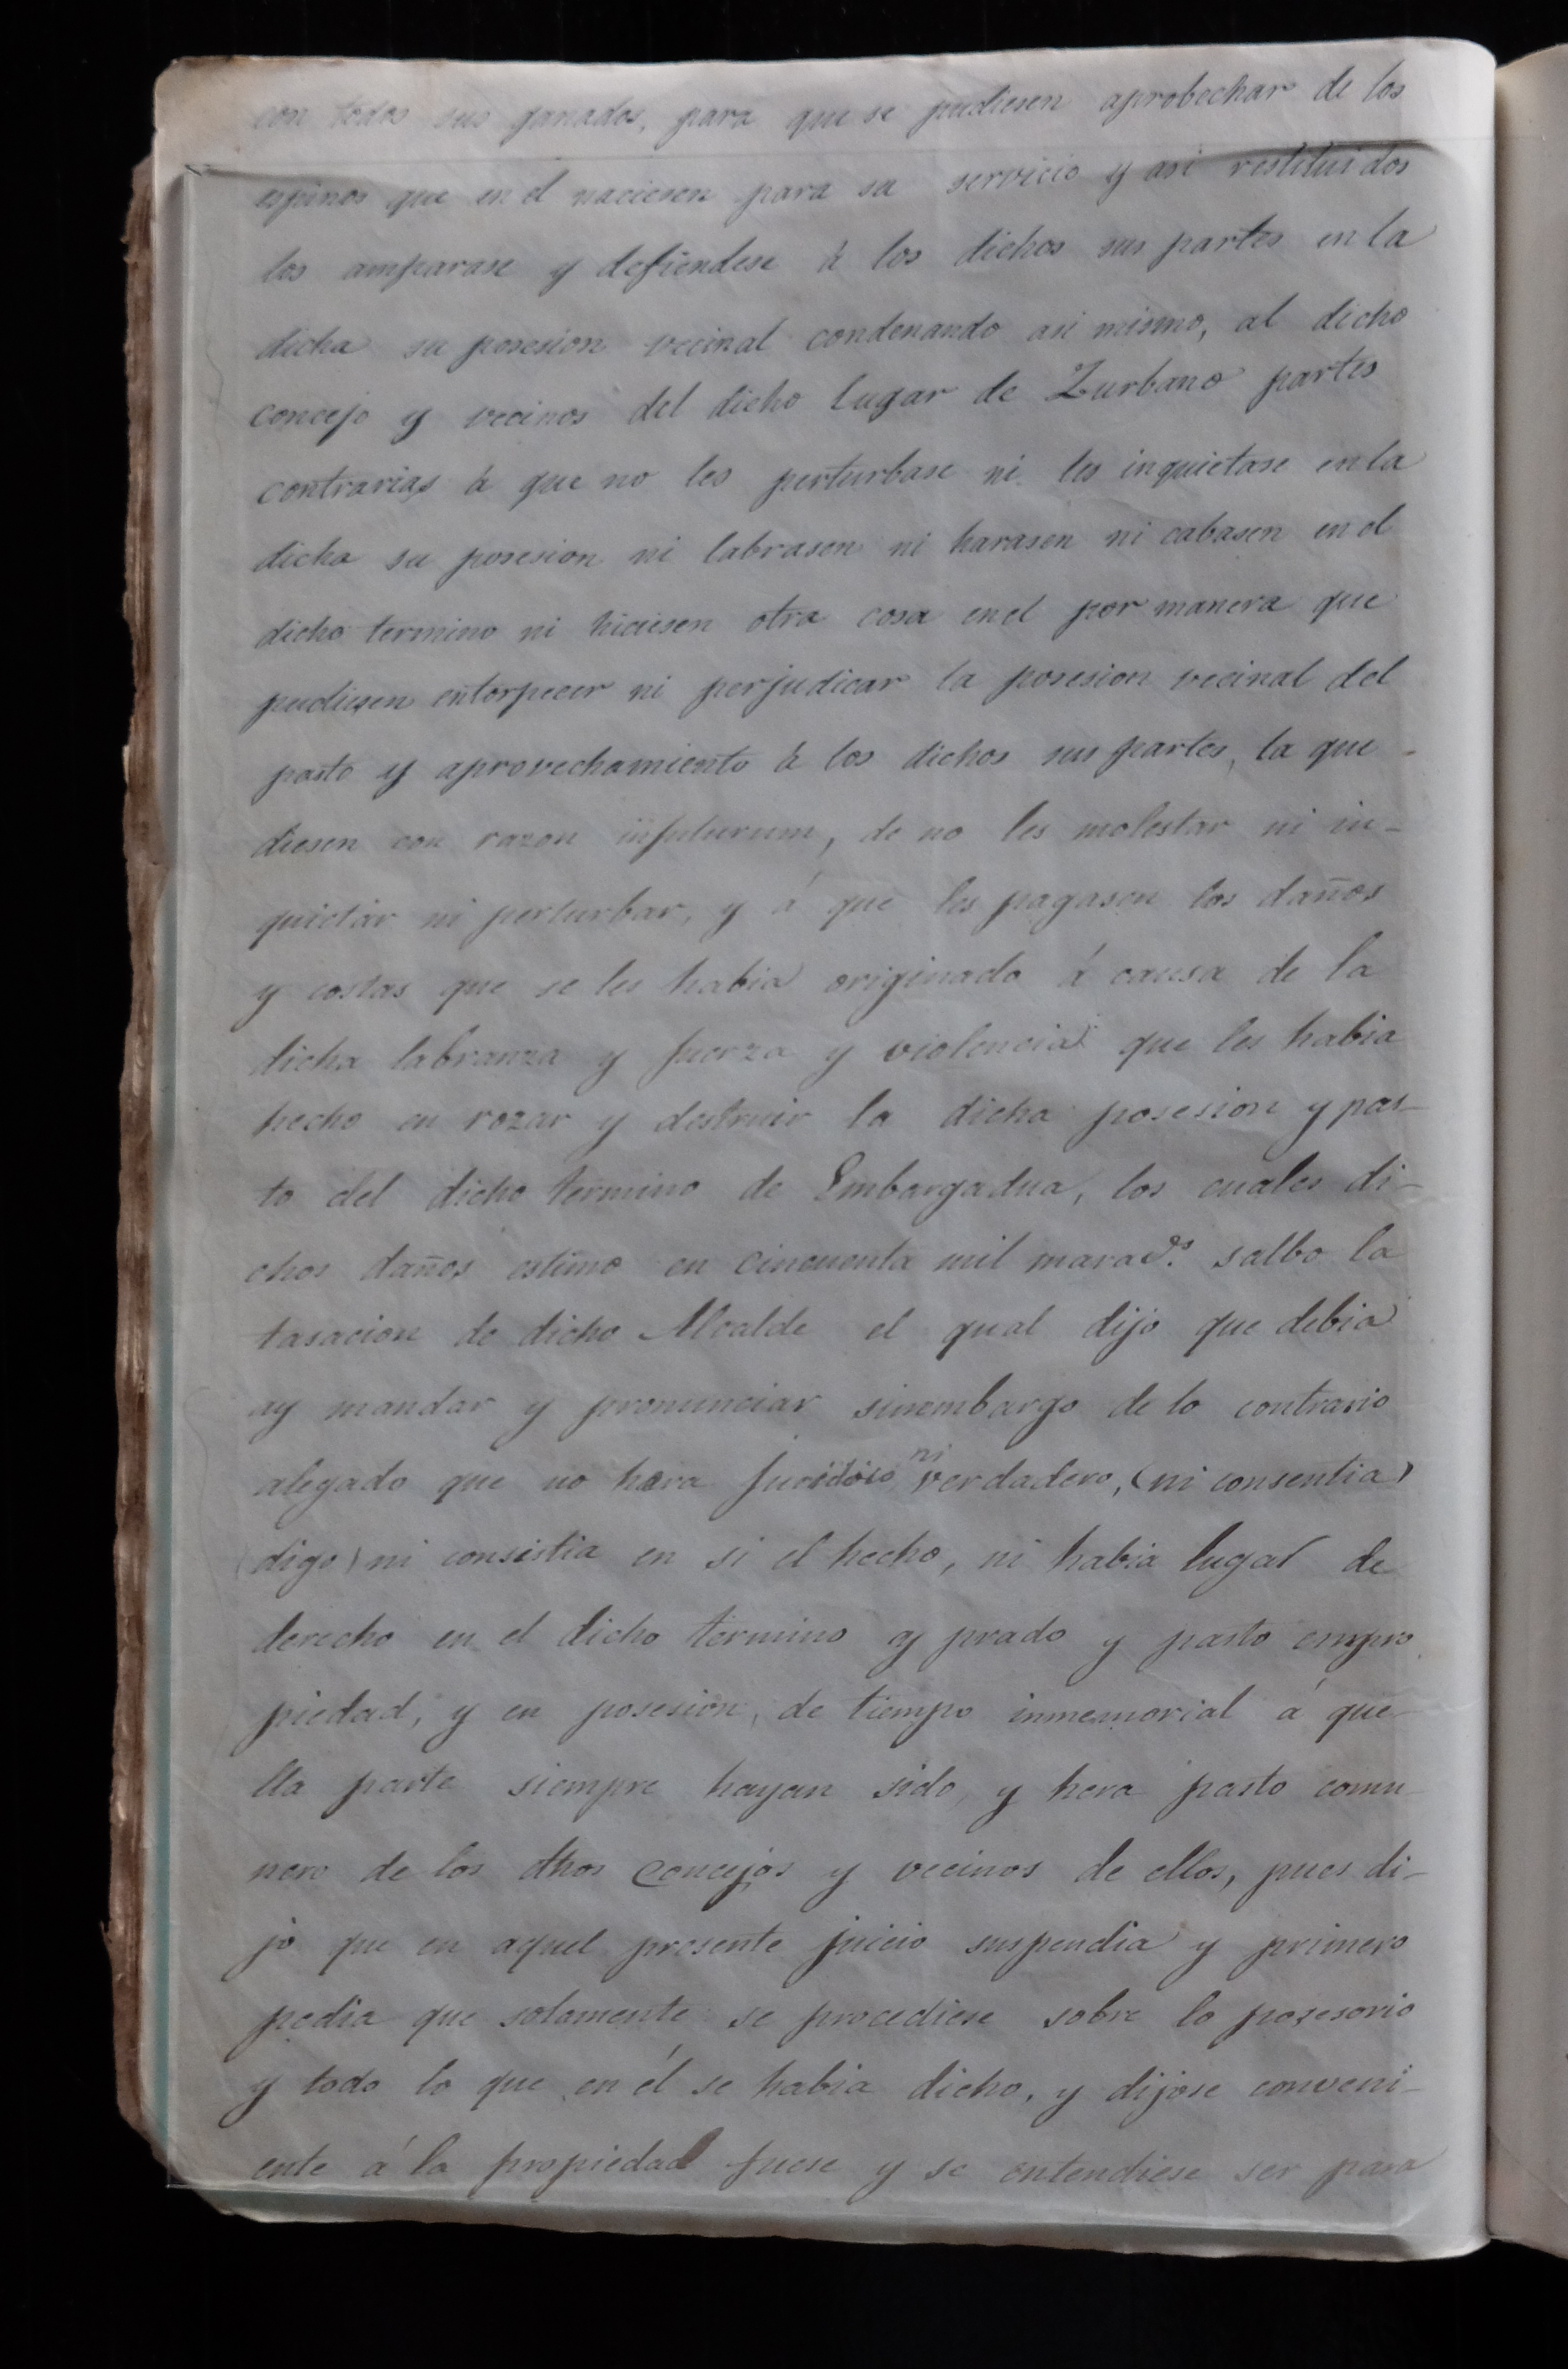 con todos sus ganados, para que se pudiesen aprobechar de los
espinos que en el naciesen para su servicio y asi restituidos
los amparase y defiendese à los dichos sus partes en la
dicha su posesion vecinal condenando asi mismo, al dicho
concejo y vecinos del dicho lugar de Zurbano partes
contrarias à que no les perturbase ni les inquietase en la
dicha su posesion ni labrasen ni harasen ni cabasen en el
dicho termino ni hiciesen otra cosa en el por manera que
pudiesen entorpecer ni perjudicar la posesion vecinal del
pasto y aprovechamiento à los dichos sus partes, la que
diesen con razon infuturum, de no les molestar ni in-
quietar ni perturbar, y á que les pagasen los daños
y costas que se les habia originado á causa de la
dicha labranza y fuerza y violencia que les habia
hecho en rozar y destruir la dicha posesion y pas-
to del dicho termino de Embargadua, los cuales di-
chos daños estimo en cincuenta mil marads. salbo la
tasacion de dicho Alcalde el qual dijo que debia
ay mandar y pronunciar sinembargo de lo contrario
alegado que no hera Juridico ni verdadero, (ni consentia)
(digo) ni consistia en si el hecho, ni habia lugar de
derecho en el dicho termino y prado y pasto enpro
piedad, y en posesion, de tiempo inmemorial á que
lla parte siempre hayan sido, y hera pasto comu
nero de los dhos Concejos y vecinos de ellos, pues di-
jo que en aquel presente juicio suspendia y primero
pedia que solamente se procediese sobre lo posesorio
y todo lo que en él se habia dicho, y dijose conveni-
ente á la propiedad fuese y se entendiese ser para